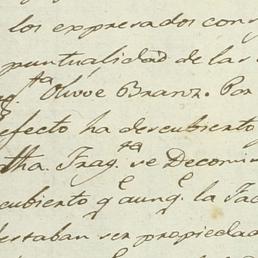 los expresados con
puntualidad de las
Olivoe Branz. Por
efecto ha descubierto
tha. Frag.ta se Decomi
cubierto q.e aunq.e la Fac
estaban ser propiedad